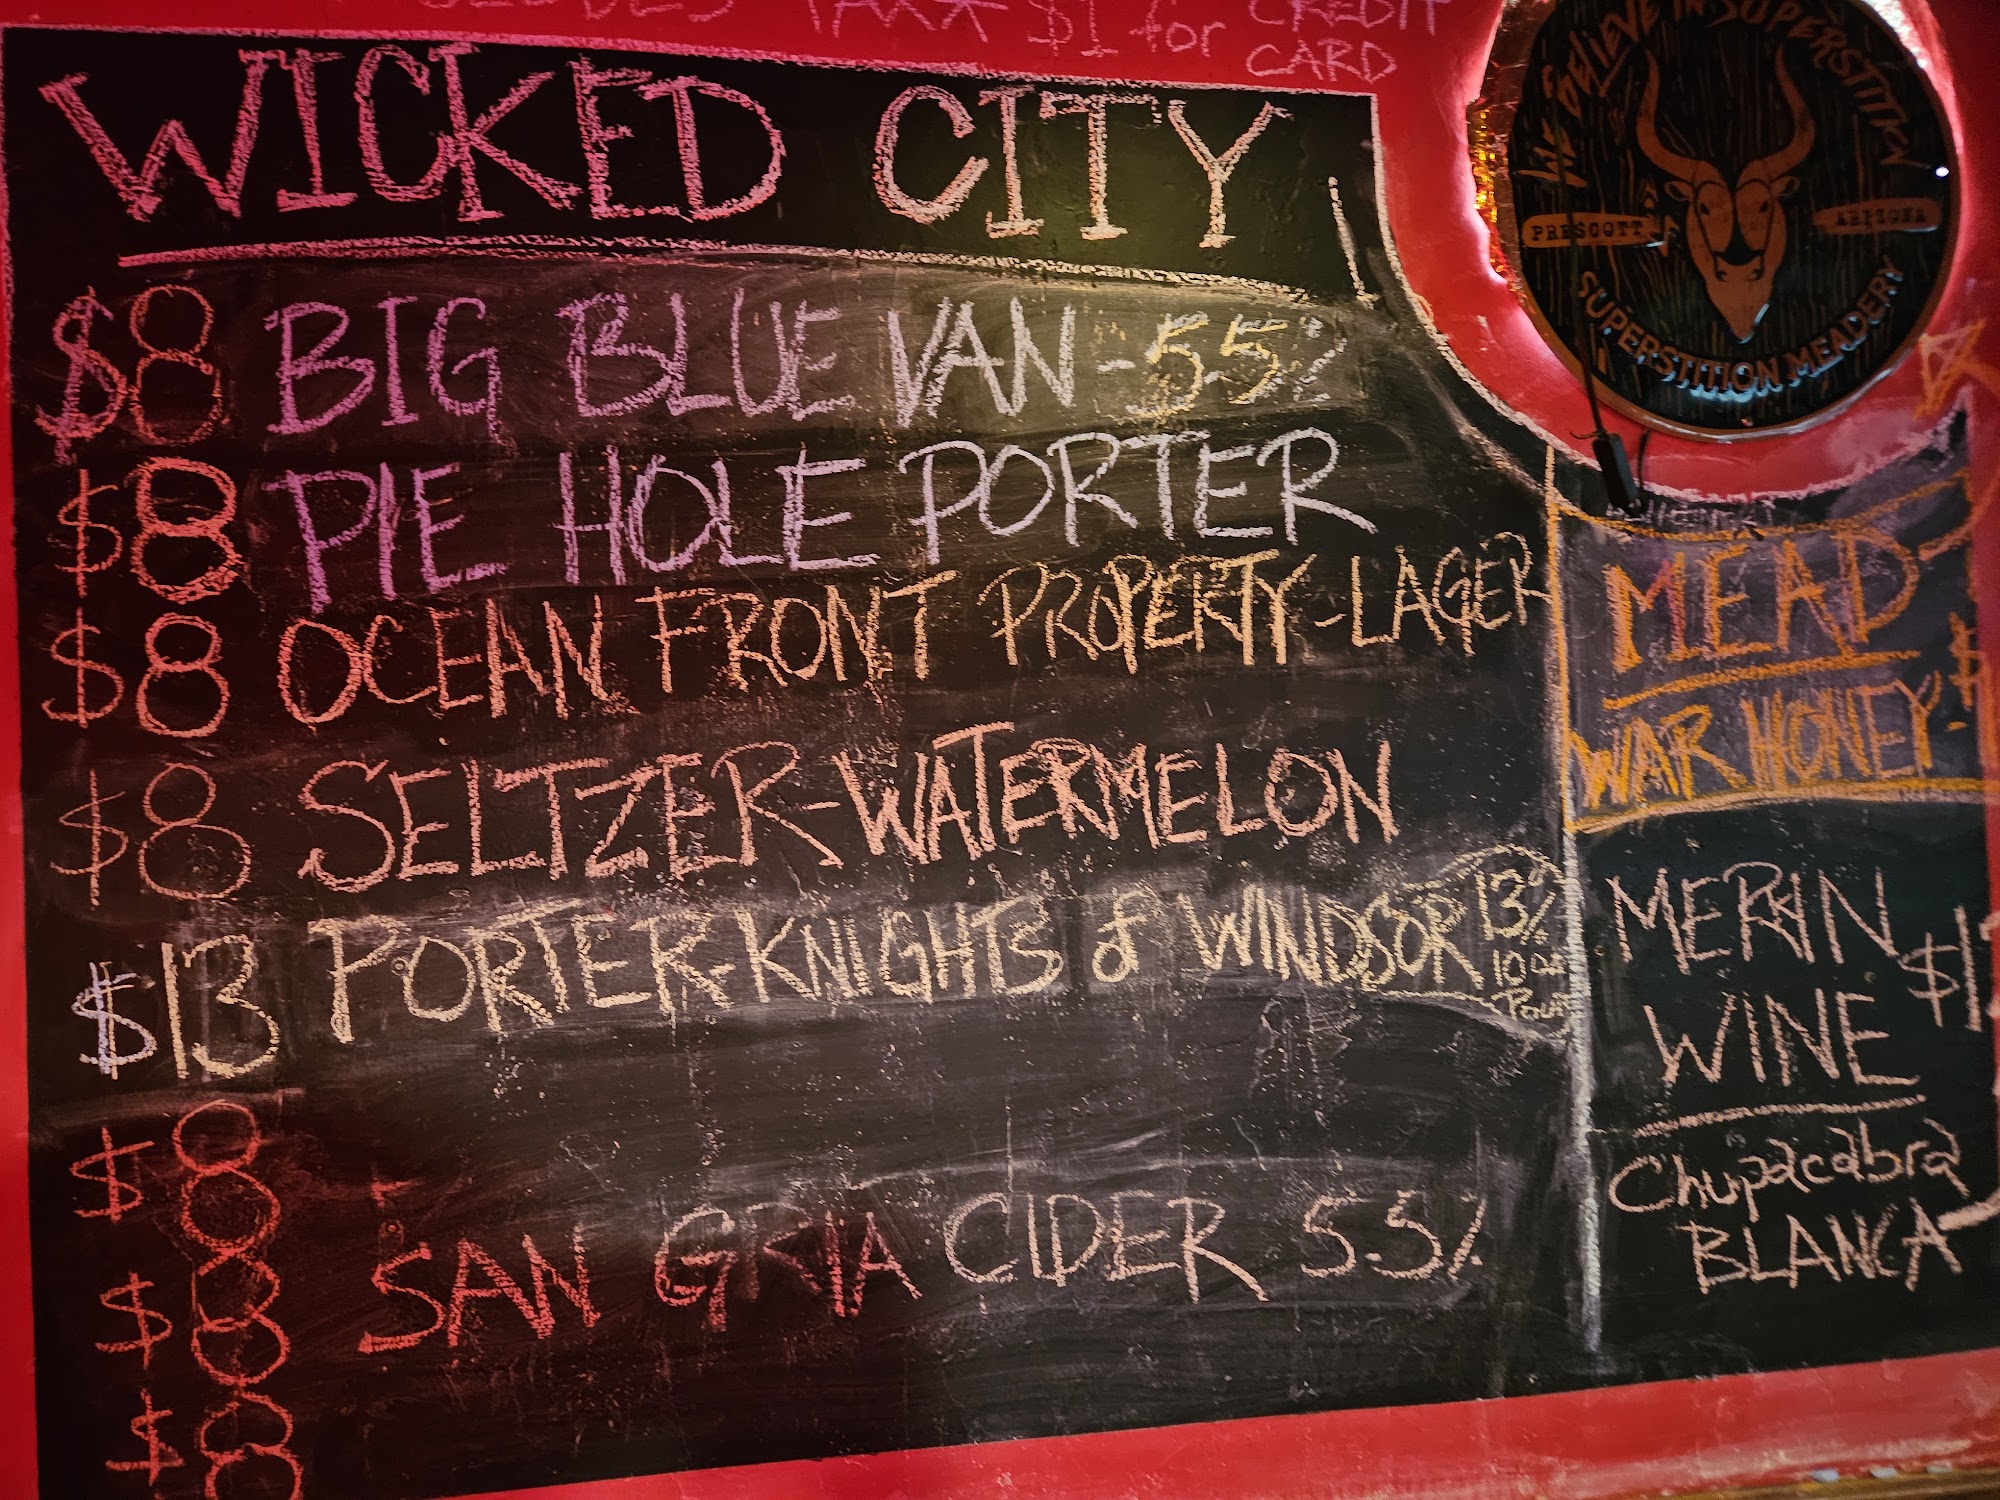 TAX* $1 for CREDIT
CARD
WICKED CITY
$8 BIG BLUE VAN - 5.5%
$8 PIE HOLE PORTER
$8 OCEAN FRONT PROPERTY - LAGER
$8 SELTZER - WATERMELON
$13 PORTER - KNIGHTS of WINDSOR 13%
10 oz
Pour
$8
SAN GRIA CIDER 5.5%
$8
$8
WE BELIEVE IN SUPERSTITION
PRESCOTT ARIZONA
SUPERSTITION MEADERY
MEAD
WAR HONEY - $
MERKIN
WINE
Chupacabra
BLANCA